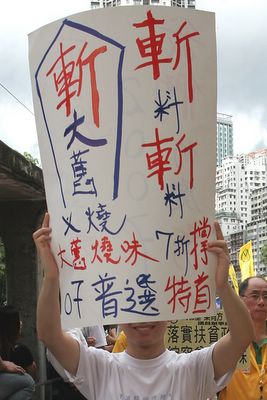 斬料
斬料
斬大舊
叉燒
大舊燒味 7折撐
07普選特首
落實扶貧